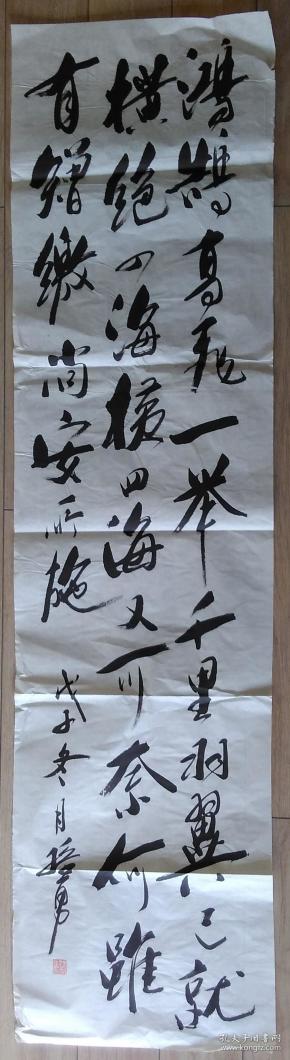 鸿鹄高飞一举千里羽翼已就
横绝四海横四海又可奈何虽
有矰缴尚安所施
戊子冬月培勇
孔夫子旧书网
www.kongfz.com